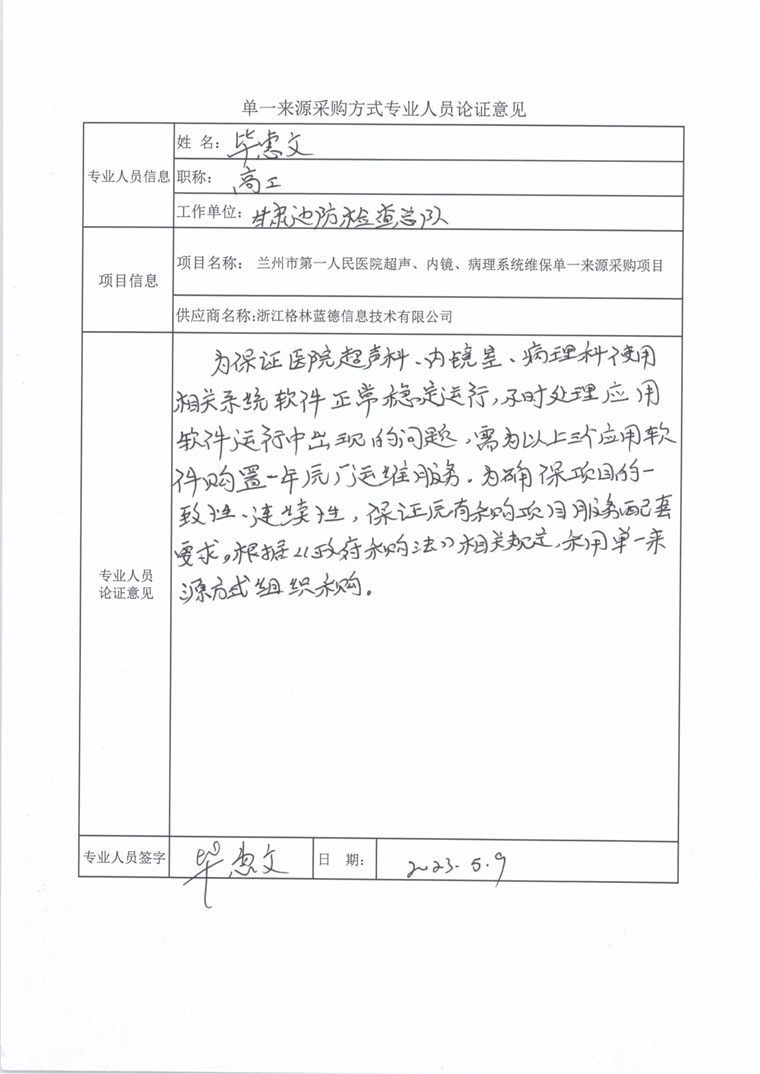 单一来源采购方式专业人员论证意见
专业人员信息
姓 名：毕惠文
职称：高工
工作单位：甘肃边防检查总队
项目信息
项目名称：兰州市第一人民医院超声、内镜、病理系统维保单一来源采购项目
供应商名称：浙江格林蓝德信息技术有限公司
专业人员
论证意见
为保证医院超声科、内镜室、病理科使用
相关系统软件正常稳定运行，及时处理应用
软件运行中出现的问题，需为以上三个应用软
件购置一年原厂运维服务。为确保项目的一
致性、连续性，保证原有采购项目服务配套
要求。根据《政府采购法》相关规定，采用单一来
源方式组织采购。
专业人员签字 毕惠文 日 期： 2023.5.9